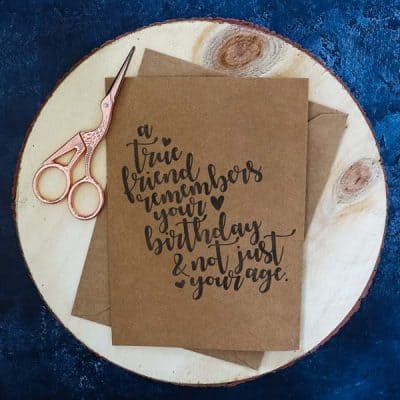 a
true
friend
remembers
your
birthday
& not just
your age.